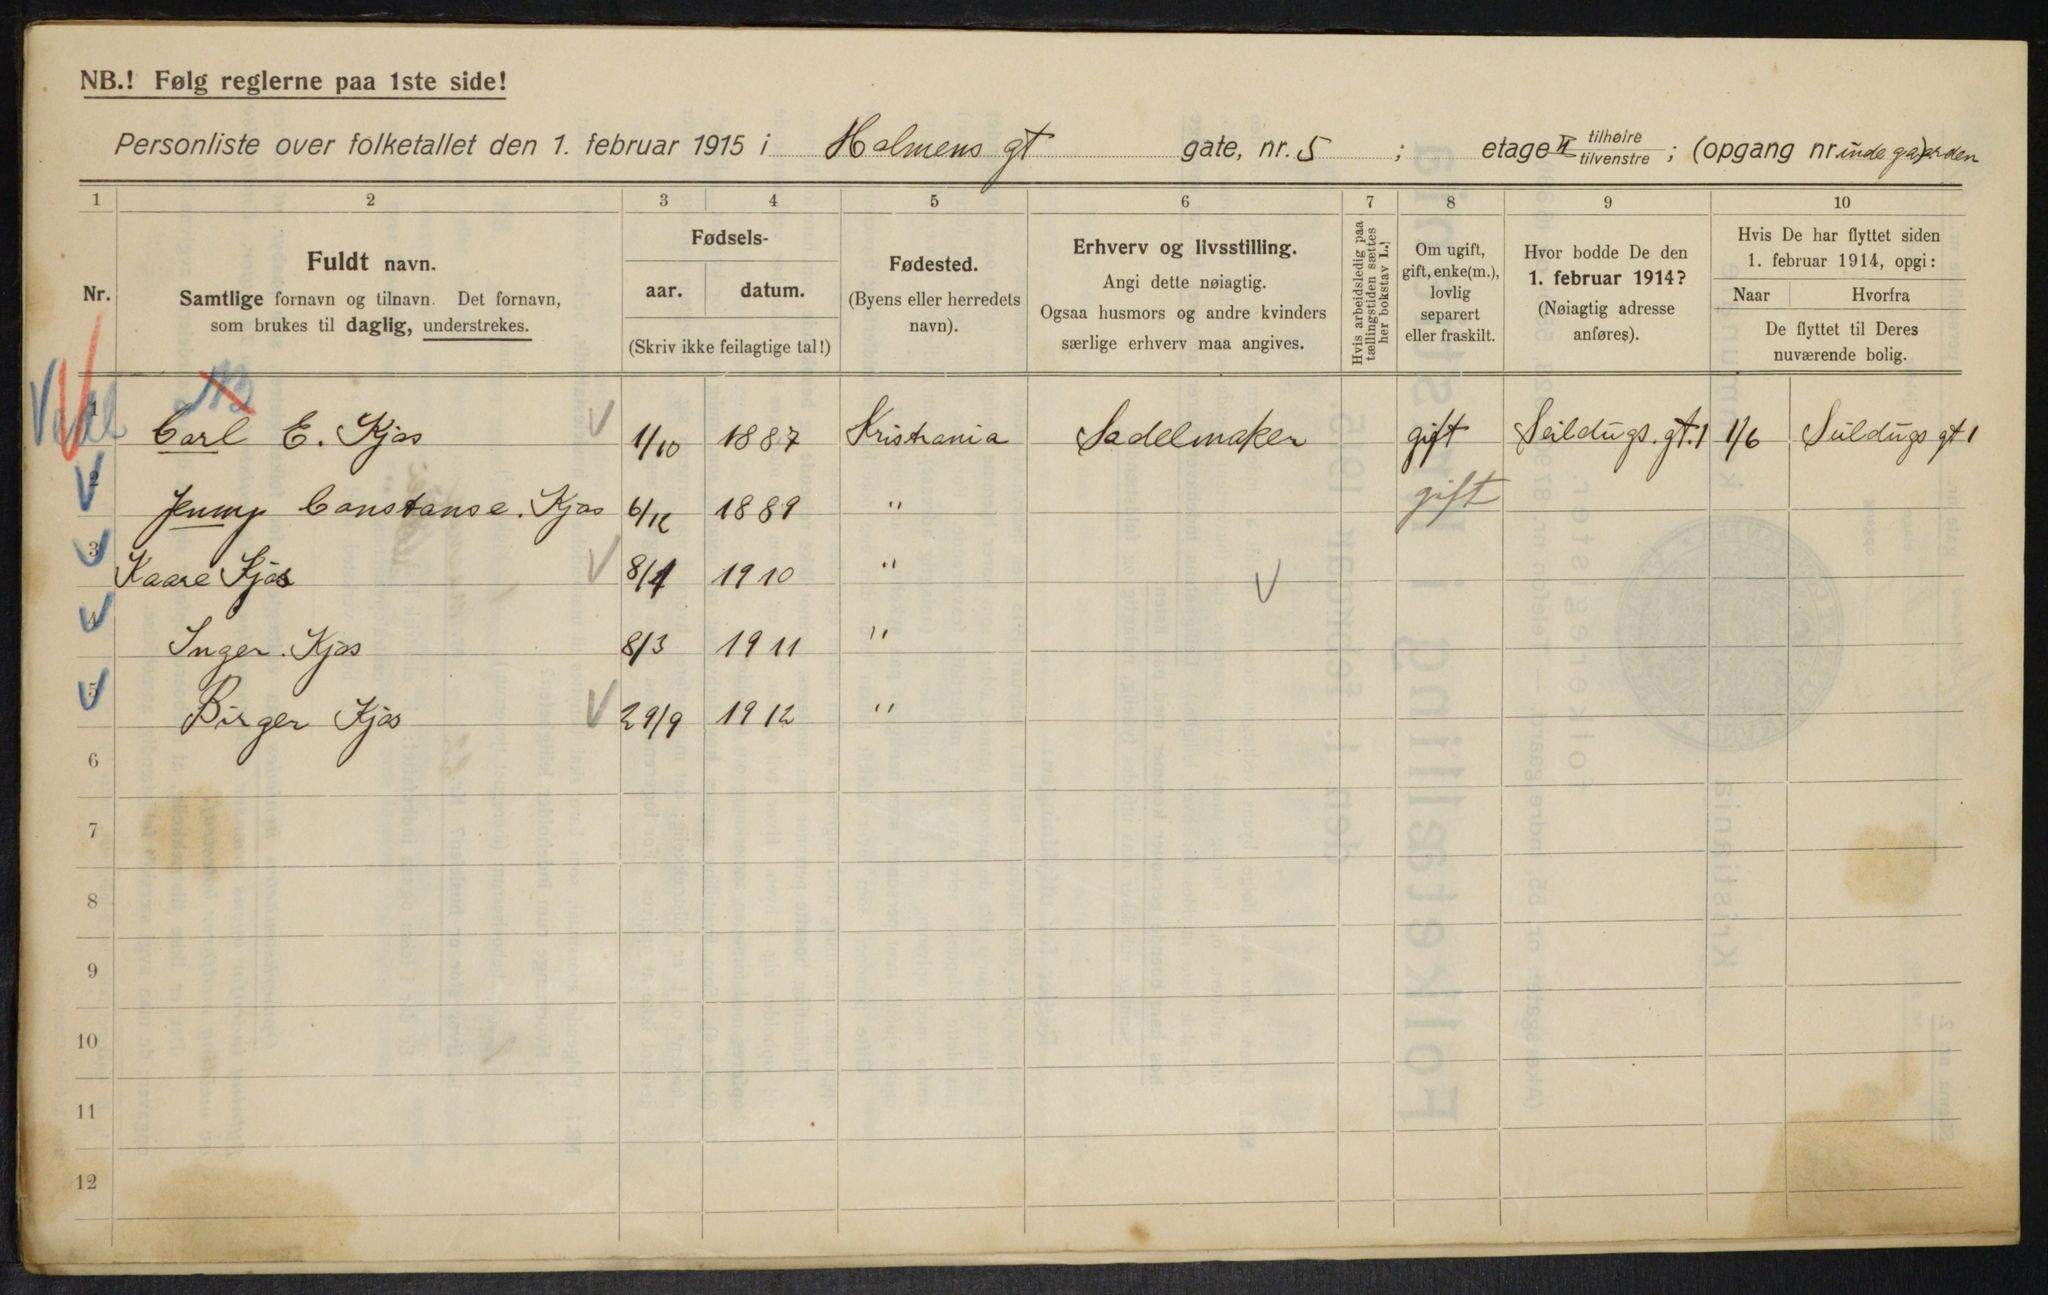 NB.! Følg reglerne paa 1ste side!
Personliste over folketallet den 1. februar 1915 i Holmens gt gate, nr. 5 ; etage II tilhøire tilvenstre ; (opgang nr. inde gaarden
1 2 3 4 5 6 7 8 9 10
Nr.
Fuldt navn.
Samtlige fornavn og tilnavn. Det fornavn,
som brukes til daglig, understrekes.
Fødsels-
aar. datum.
(Skriv ikke feilagtige tal!)
Fødested.
(Byens eller herredets
navn).
Erhverv og livsstilling.
Angi dette nøiagtig.
Ogsaa husmors og andre kvinders
særlige erhverv maa angives.
Hvis arbeidsledig paa
tællingstiden sættes
her bokstav L.
Om ugift,
gift, enke(m.),
lovlig
separert
eller fraskilt.
Hvor bodde De den
1. februar 1914?
(Nøiagtig adresse
anføres).
Hvis De har flyttet siden
1. februar 1914, opgi:
Naar Hvorfra
De flyttet til Deres
nuværende bolig.
1 Carl E. Kjos 1/10 1887 Kristiania Sadelmaker gift Seildugs. gt. 1 1/6 Seildugs gt 1
2 Jenny Constanse. Kjos 6/12 1889 " gift
3 Kaare Kjos 8/1 1910 "
4 Inger. Kjos 8/3 1911 "
5 Birger Kjos 29/9 1912 "
6
7
8
9
10
11
12